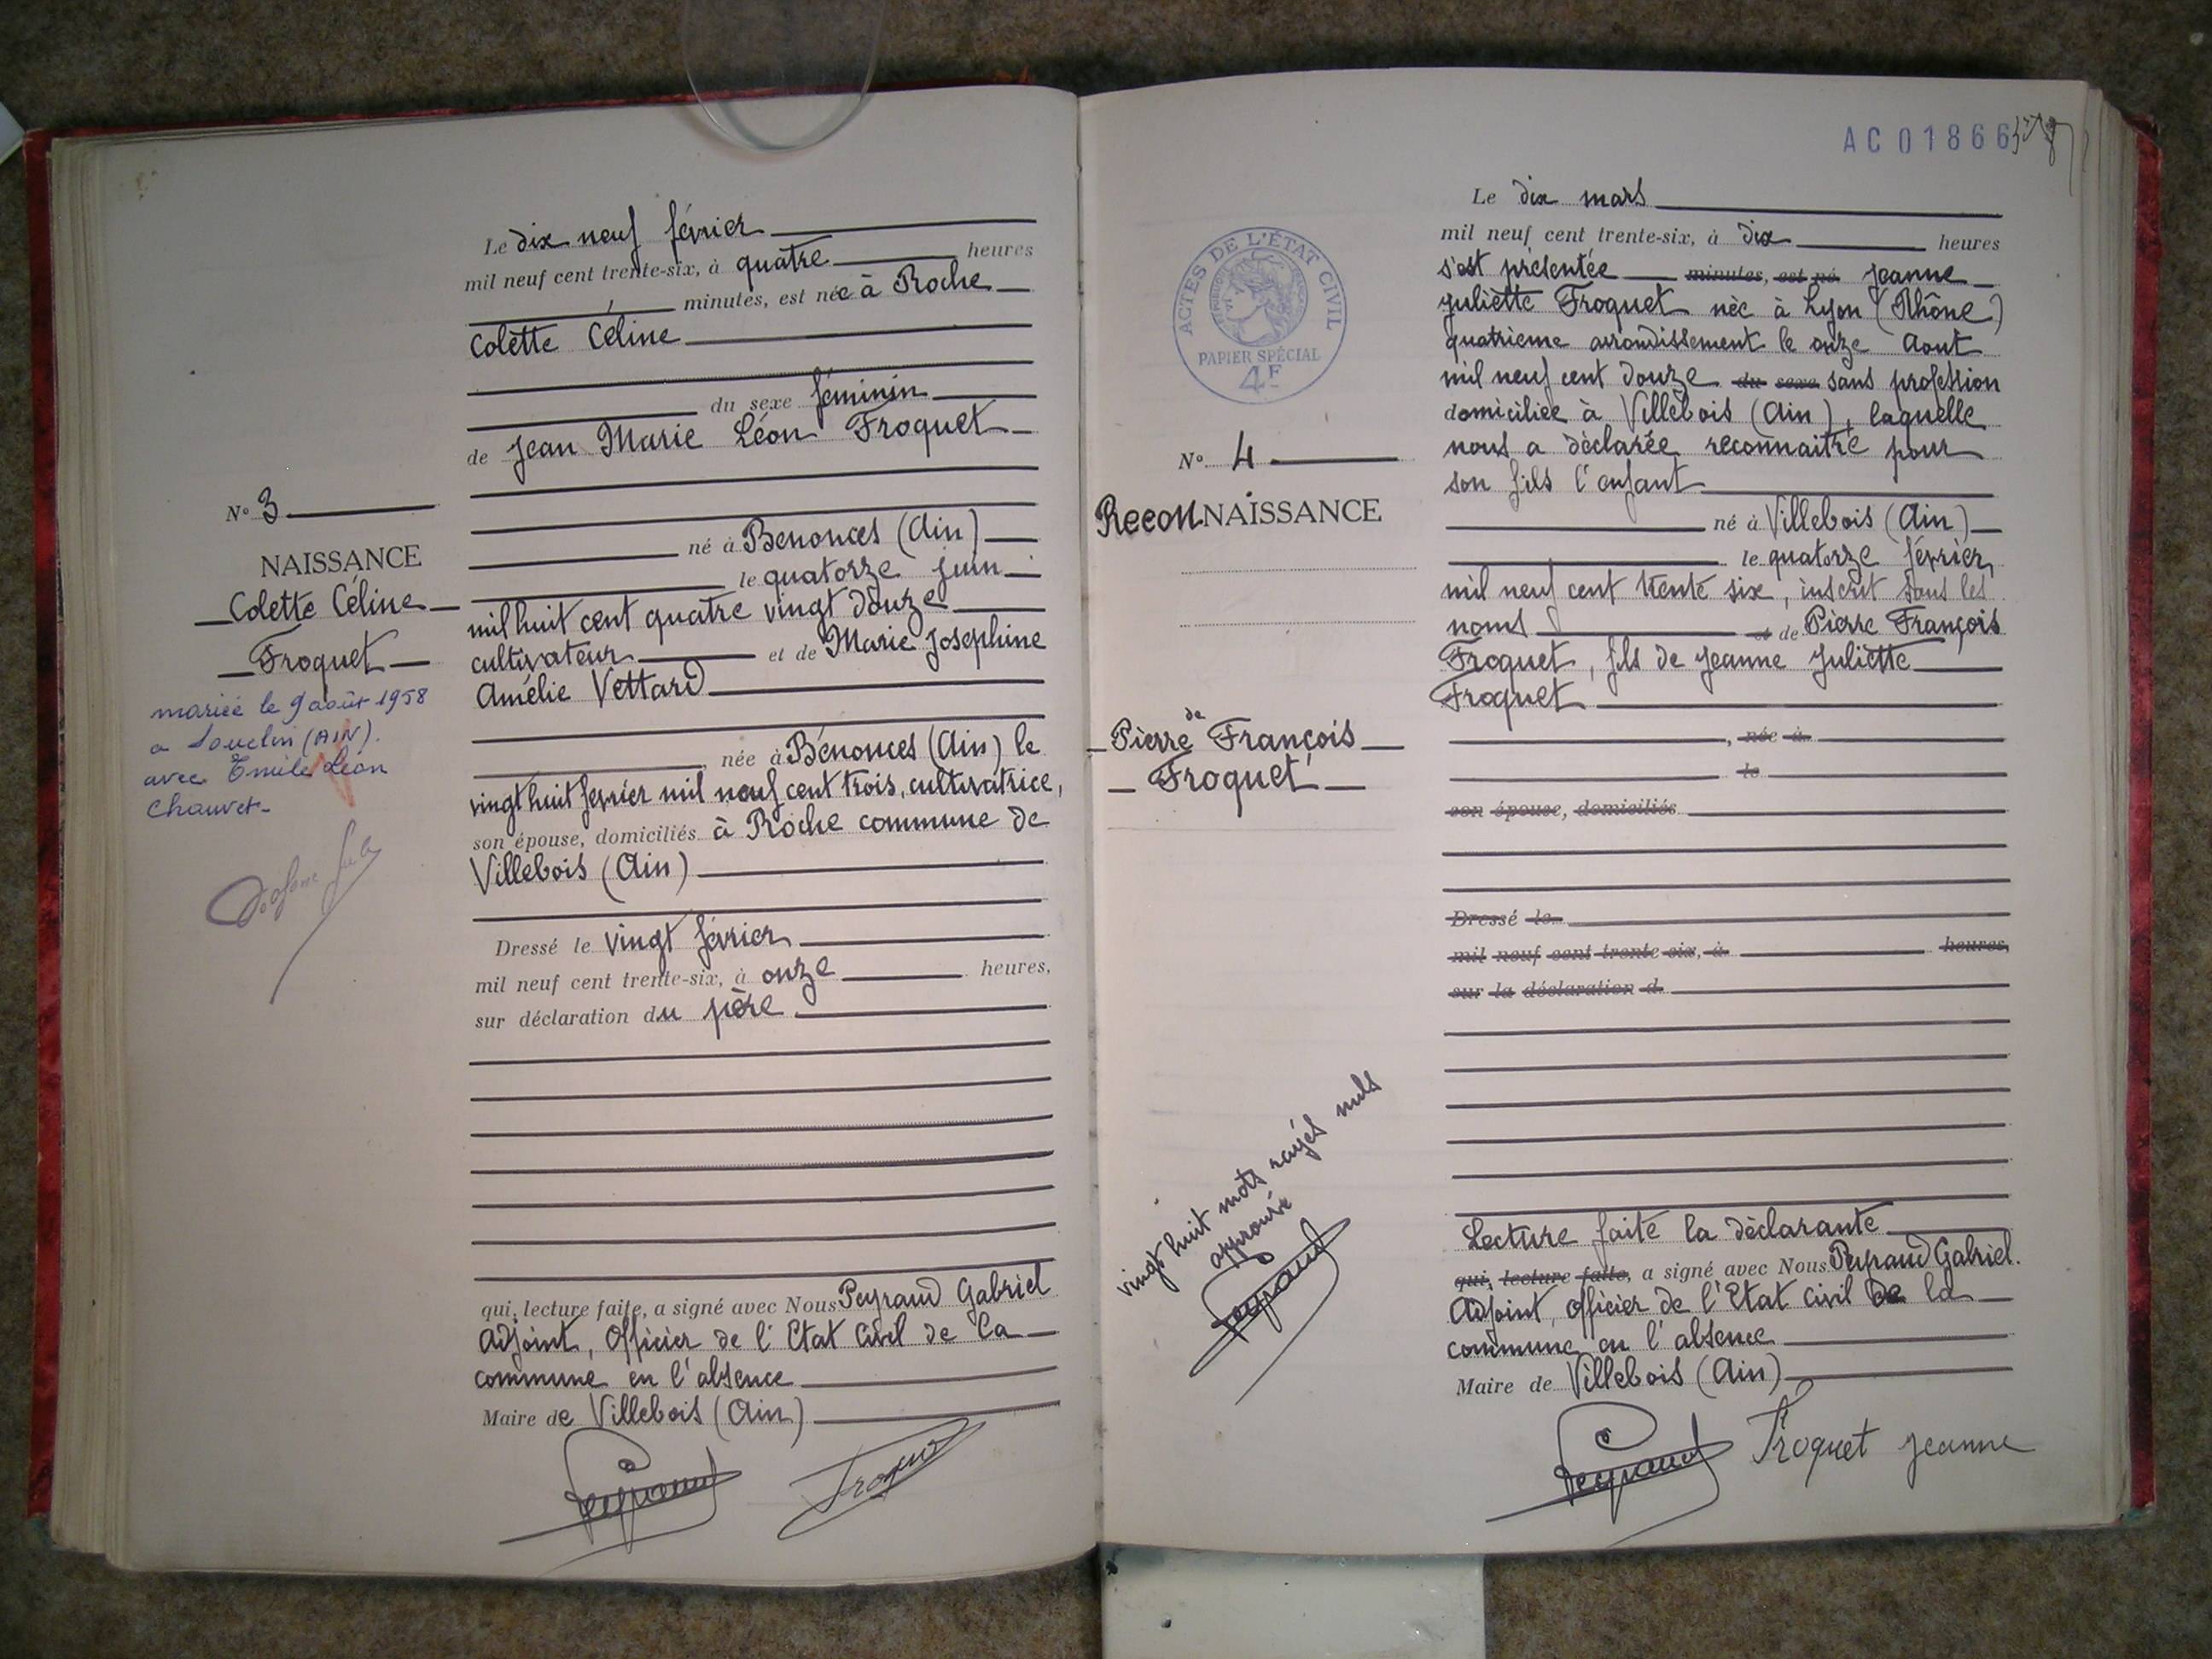 Le dix neuf février
mil neuf cent trente-six, à quatre heures
minutes, est née à Roche
Colette Céline
du sexe féminin
de Jean Marie Léon Froquet
né à Benonces (Ain)
le quatorze juin
mil huit cent quatre vingt douze
cultivateur et de Marie Josephine
Amélie Vettard
née à Bénonces (Ain) le
vingt huit fevrier mil neuf cent trois, cultivatrice,
son épouse, domiciliés à Roche commune de
Villebois (Ain)
Dressé le vingt février
mil neuf cent trente-six, à onze heures,
sur déclaration du père
qui, lecture faite, a signé avec Nous Peyraud Gabriel
Adjoint, Officier de l'Etat Civil de la
commune en l'absence
Maire de Villebois (Ain)
Peyraud
N° 3
NAISSANCE
Colette Céline
Froquet
mariée le 9 août 1958
a Souclin (AIN).
avec Emile Léon
Chauvet
AC 01866
ACTES DE L'ÉTAT CIVIL
PAPIER SPÉCIAL
4F
N° 4
ReconNAISSANCE
de
Pierre François
Froquet
vingt huit mots rayés nuls
approuvé
Peyraud
Le dix mars
mil neuf cent trente-six, à dix heures
s'est présentée minutes, est né Jeanne
Juliette Froquet née à Lyon (Rhône)
quatrieme arrondissement le onze Aout
mil neuf cent douze du sexe sans profession
domiciliée à Villebois (Ain), laquelle
nous a déclarée reconnaitre pour
son fils l'enfant
né à Villebois (Ain)
le quatorze février
mil neuf cent trente six, inscrit sous les
noms et de Pierre François
Froquet, fils de Jeanne Juliette
Froquet
, née à
le
son épouse, domiciliés
Dressé le
mil neuf cent trente-six, à heures,
sur la déclaration d
Lecture faite la déclarante
qui, lecture faite, a signé avec Nous Peyraud Gabriel.
Adjoint, Officier de l'Etat Civil de la
commune en l'absence
Maire de Villebois (Ain)
Peyraud Froquet Jeanne